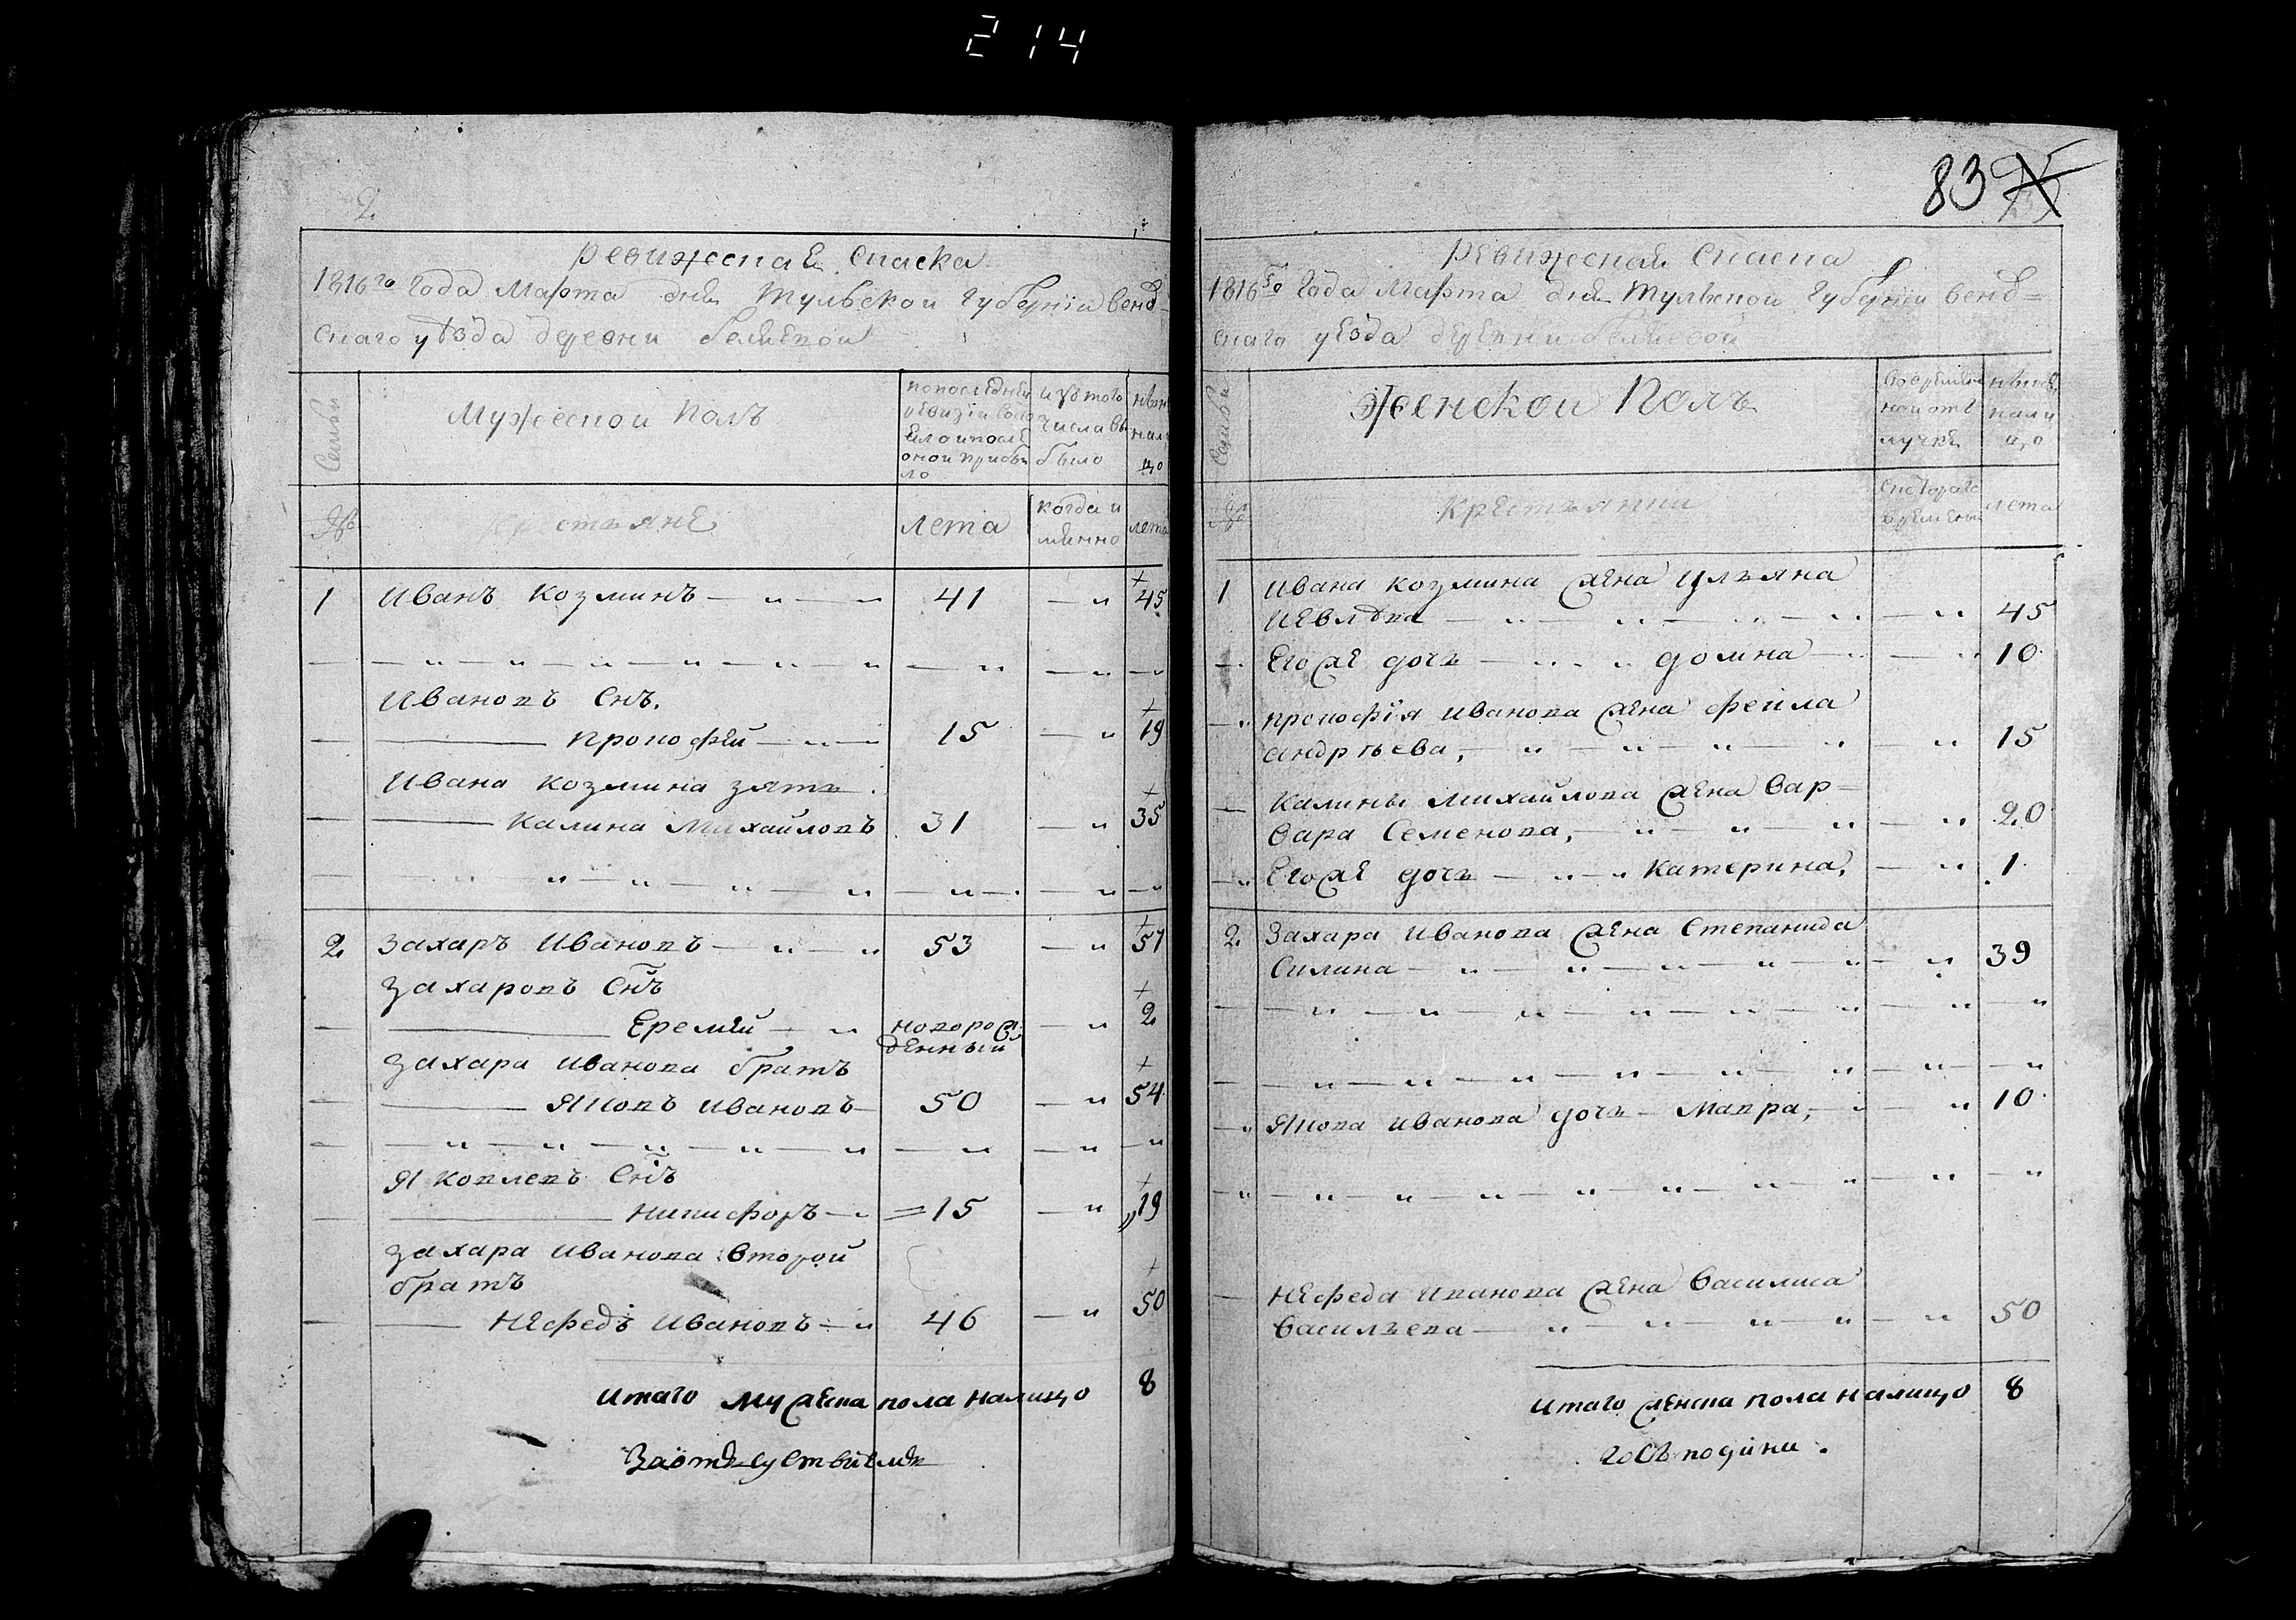 214
2.
Ревижеская Сказка
1816го года Марта дня Тульской губернiи венев-
скаго уѣзда деревни
Семьи
Мужескои полъ
по последней
ревизiи состо
яло и после
оной прибы
ло
изъ того
числа вы
было
нынѣ
нали
цо
№
Крестьяне
лета
когда и
мянно
лета
1 Иванъ Козминъ — „ — „ 41 — „ 45
Ивановъ Снъ.
Прокофей — „ — 15 — „ 19
Ивана Козмина зять.
Калина Михайловъ 31 — „ 35
2. Захаръ Ивановъ — „ — „ 53 — „ 57
Захаровъ Снъ
Еремей — „ новорож
денный — „ 2
Захара Иванова братъ
Яковъ Ивановъ — 50 — „ 54
Яковлевъ Снъ
Никифоръ — „ = 15 — „ 19
Захара Иванова второй
братъ
Нефедъ Ивановъ — „ 46 — „ 50
Итаго мужеска пола налицо 8
83
Ревижеская Сказка
1816го года Марта дня Тульской губернiи венев=
скаго уезда деревни
Семьи
Женскои Полъ
во времян
ной от
лучке
ныне
нали
цо
№
Крестьянки
скоторого
времени
лета
1 Ивана Козмина жена Ульяна
Иевлѣва — „ — „ — „ — „ — „ 45
Егоже дочь — „ — „ домна — „ — „ 10
Прокофiя Иванова жена фекла
андрѣева, — „ — „ — „ — „ — „ 15
Калины Михайлова жена Вар-
вара Семенова, — „ — „ — „ — „ 20
Егоже дочь — „ — „ Катерина, — „ 1
2. Захара Иванова жена Степанида
Силина — „ — „ — „ — „ — „ — „ 39
Якова Иванова дочь — Мавра, — „ — „ 10
Нефеда Иванова жена Василиса
Васильева — „ — „ — „ — „ — „ 50
Итаго женска пола налицо 8